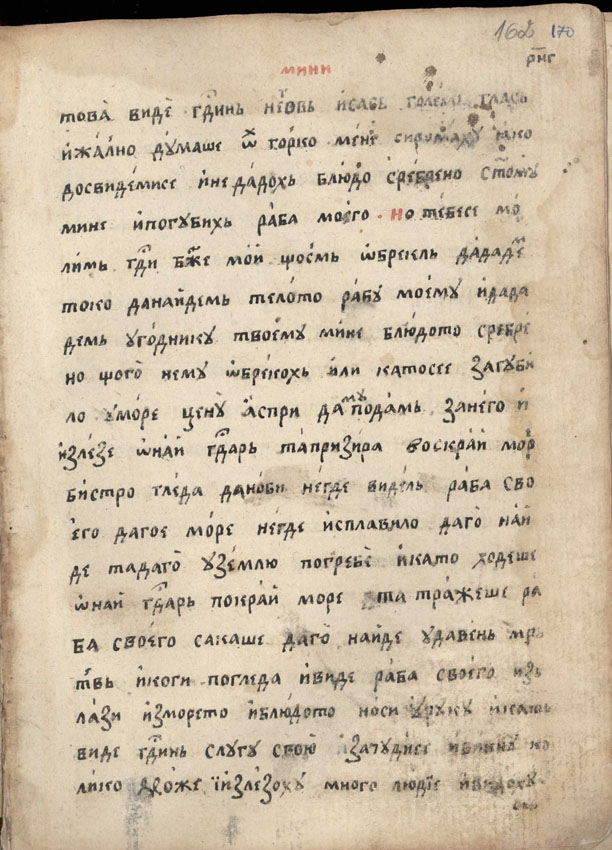 162 170
рⷩ҇мг
мини
това̀ видѐ гⷭ҇динь неговь и҆сась голѣмо гласъ
и҆жа́лно ду́маше ѿ го́рко ме́не сирома́ху ꙗко
досвиде́мисе и҆не да́дохь блю́до сре́брено стⷪ҇мꙋ
мине и҆погуби́хь ра́ба мое́го · но те́бесе мо́
лимь гⷭ҇ди бж҃е мо́й що́семь ѡ҆брекль да́дадеⷨ
токо дана́йдемь те́лото ра́бу моемꙋ и҆дада
демь уго́днику твое́му мине блю́дото сребре
но що́го нему ѡ҆бреко́хь и҆ли като́сее загуби
ло у҆мо́ре цену҆ а҆спри даⷨмꙋпода́мь за́него и҆
и҆зле́зе ѡ҆на́й гⷭ҇дарь тапризи́ра воскра́й мор
би́стро гле́да дано́би не́где виде́ль ра́ба сво
е҆го дагое мо́ре не́где исплави́ло даго̀ най
де тадаго̀ у҆зе́млю погребѐ и҆като ходеше
ѡ҆най гⷭ҇дарь покра́й море та тра́жеше ра
ба сво́его сакаше даго̀ на́йде у҆да́вень мрь
твь и҆коги погледа и҆виде ра́ба своего и҆зь
ла́зи и҆змо́рето и҆блю́дото носи у҆ру́ку
виде гⷭ҇динь слугу̀ свою̀ и҆зачуди́се ко
лико и҆зле́зоху мно́го лю́дїе и҆видоху